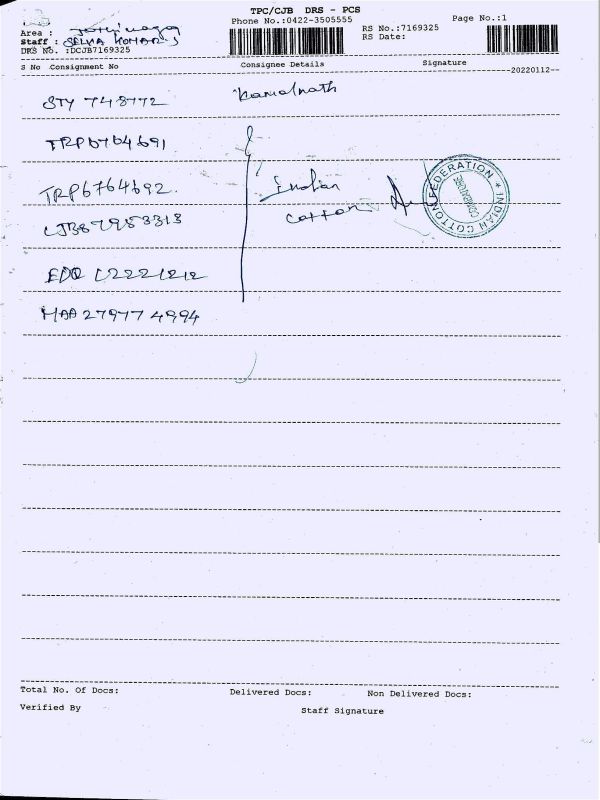 TPC/CJB DRS - PCS
Phone No.:0422-3505555
Page No.:1
RS No.:7169325
RS Date:
Area :
Staff : SELVA KUMAR S
DRS No. :DCJB7169325
S No Consignment No Consignee Details Signature
--20220112--
STY 748772 Kamalnath
TRP6764691
TRP6764692. Indian
Cotton
CJB87953313
EDQ
MAA279774994
COTTON FEDERATION * INDIAN
COIMBATORE
Total No. Of Docs: Delivered Docs: Non Delivered Docs:
Verified By Staff Signature